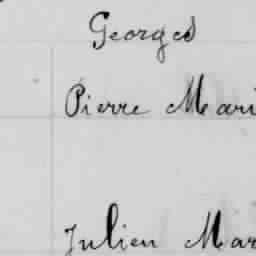 Georges
Pierre Mari
Julien Mar